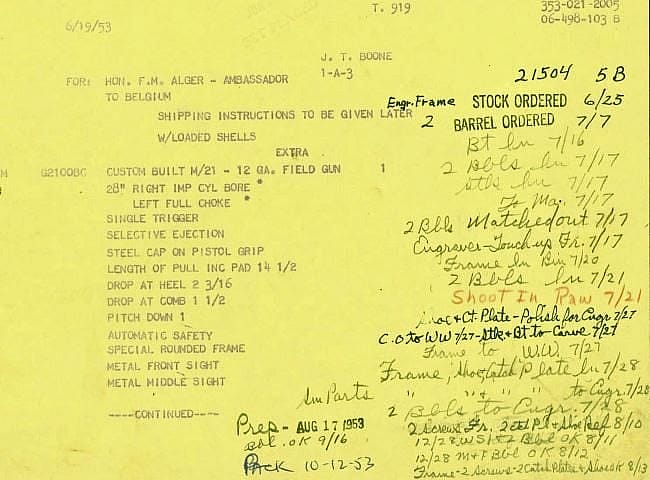 T. 919
353-021-2005
06-498-103 B
6/19/53
J. T. BOONE
1-A-3
FOR: HON. F.M. ALGER - AMBASSADOR
TO BELGIUM
SHIPPING INSTRUCTIONS TO BE GIVEN LATER
W/LOADED SHELLS
EXTRA
M G2100BC CUSTOM BUILT M/21 - 12 GA. FIELD GUN 1
28" RIGHT IMP CYL BORE *
LEFT FULL CHOKE *
SINGLE TRIGGER
SELECTIVE EJECTION
STEEL CAP ON PISTOL GRIP
LENGTH OF PULL INC PAD 14 1/2
DROP AT HEEL 2 3/16
DROP AT COMB 1 1/2
PITCH DOWN 1
AUTOMATIC SAFETY
SPECIAL ROUNDED FRAME
METAL FRONT SIGHT
METAL MIDDLE SIGHT
----CONTINUED----
21504 5B
Engr. Frame STOCK ORDERED 6/25
2 BARREL ORDERED 7/7
Bt In 7/16
2 Bbls In 7/17
Stk In 7/17
To Ma. 7/17
2 Bbls Matched out 7/17
Engraver-Touch up Fr. 7/17
Frame In Bin 7/20
2 Bbls In 7/21
Shoot In Raw 7/21
Shoe & Ct Plate - Polish for Engr 7/27
C.O to W.W 7/27 - Stk & Bt. to Carve 7/27
Frame to W.W. 7/27
Frame, Shoe, Catch Plate In 7/28
" " & " to Engr. 7/28
2 Bbls to Engr. 7/28
Sm Parts
Prep - AUG 17 1953
Col. OK 9/16
Pack 10-12-53
2 Screws Fr. 2 Ct Pl & Shoe Ref 8/10
12/28 W S 1 & 2 Bbl OK 8/11
12/28 M & F Bbl OK 8/12
Frame - 2 Screws - 2 Catch Plates & Shoe OK 8/13